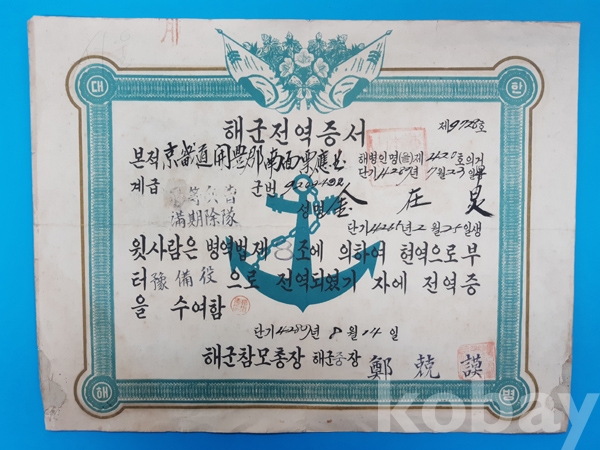 대 한
해군전역증서
제9726호
본적 京畿道 開豊郡 南面
해병인명(을)제420호의거
단기4287년 7월23일부
계급 군번
성명 金 在 泉
滿期除隊
단기4265년 2월25일생
윗사람은 병역법 제 조에 의하여 현역으로부
터 豫備役 으로 전역되였기 자에 전역증
을 수여함
단기4287년 8월14일
해군참모총장 해군중장 鄭 兢 謨
해 병
kobay